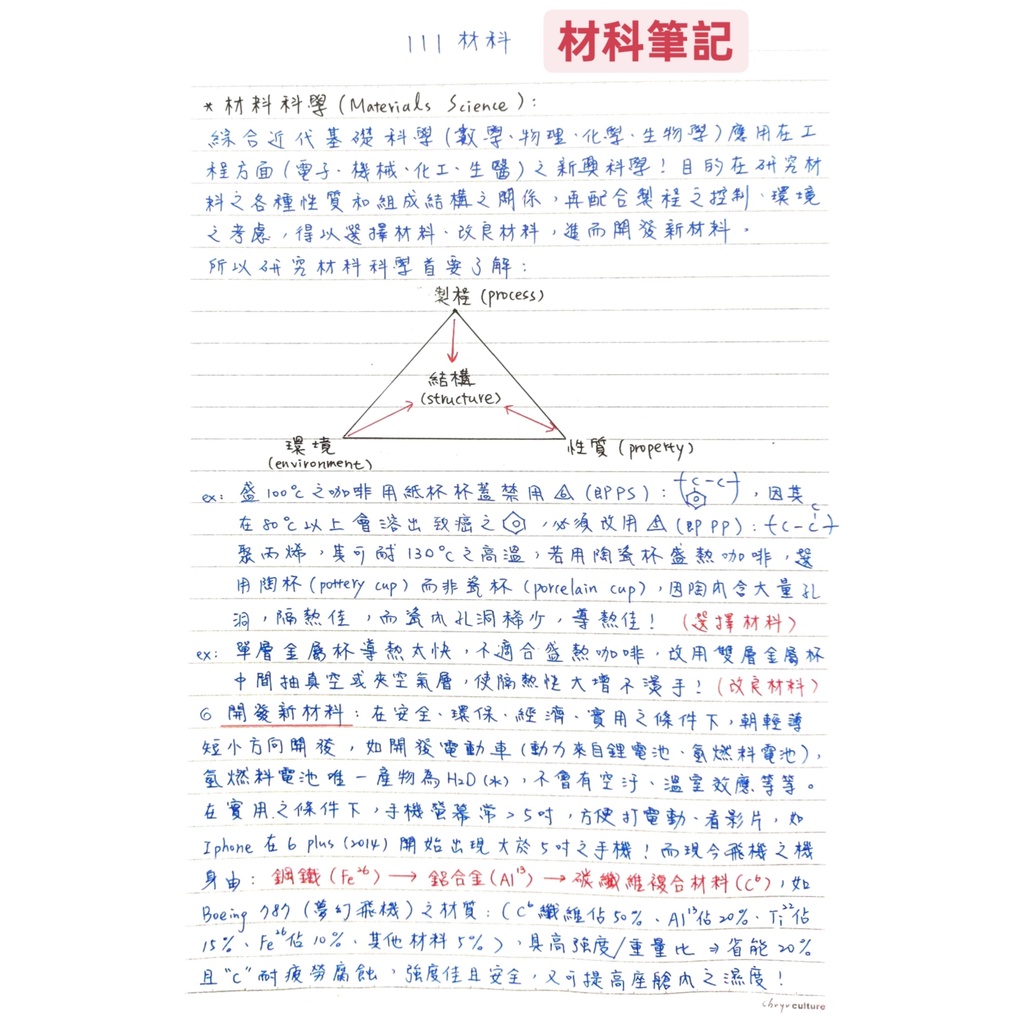 111 材料
材料筆記
* 材料科學 (Materials Science):
綜合近代基礎科學(數學、物理、化學、生物學)應用在工
程方面(電子、機械、化工、生醫)之新興科學!目的在研究材
料之各種性質和組成結構之關係,再配合製程之控制、環境
之考慮,得以選擇材料、改良材料,進而開發新材料。
所以研究材料科學首要了解:
製程 (process)
結構
(structure)
環境
(environment)
性質 (property)
ex: 盛100℃之咖啡用紙杯杯蓋禁用 6 (即PS): (C-C), 因其
在80℃以上會溶出致癌之,必須改用 5 (即PP): (C-C)
C
聚丙烯,其可耐130℃之高溫,若用陶瓷杯盛熱咖啡,選
用陶杯(pottery cup)而非瓷杯(porcelain cup),因陶內含大量孔
洞,隔熱佳,而瓷內孔洞稀少,導熱佳!(選擇材料)
ex: 單層金屬杯導熱太快,不適合盛熱咖啡,改用雙層金屬杯
中間抽真空或夾空氣層,使隔熱性大增不燙手!(改良材料)
◎ 開發新材料:在安全、環保、經濟、實用之條件下,朝輕薄
短小方向開發,如開發電動車(動力來自鋰電池、氫燃料電池),
氫燃料電池唯一產物為H2O(水),不會有空汙、溫室效應等等。
在實用之條件下,手機螢幕常>5吋,方便打電動、看影片,如
Iphone 在 6 plus (2014) 開始出現大於5吋之手機!而現今飛機之機
身由:鋼鐵(Fe²⁶) → 鋁合金(Al¹³) → 碳纖維複合材料(C⁶),如
Boeing 787 (夢幻飛機)之材質:(C⁶纖維佔50%、Al¹³佔20%、Ti²²佔
15%、Fe²⁶佔10%、其他材料5%),具高強度/重量比 ⇒ 省能20%
且"C"耐疲勞腐蝕,強度佳且安全,又可提高座艙內之濕度!
choyo culture